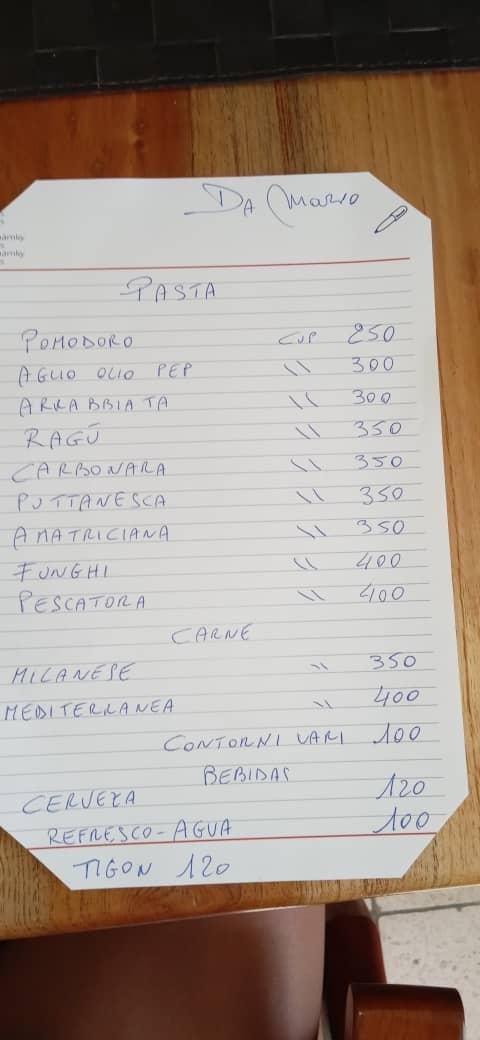 Da Mario
PASTA
POMODORO CUP 250
AGLIO OLIO PEP \\ 300
ARRABBIATA \\ 300
RAGÚ \\ 350
CARBONARA \\ 350
PUTTANESCA \\ 350
AMATRICIANA \\ 350
FUNGHI \\ 400
PESCATORA \\ 400
CARNE
MILANESE \\ 350
MEDITERRANEA \\ 400
CONTORNI VARI 100
BEBIDAS
CERVEZA 120
REFRESCO-AGUA 100
TIGON 120